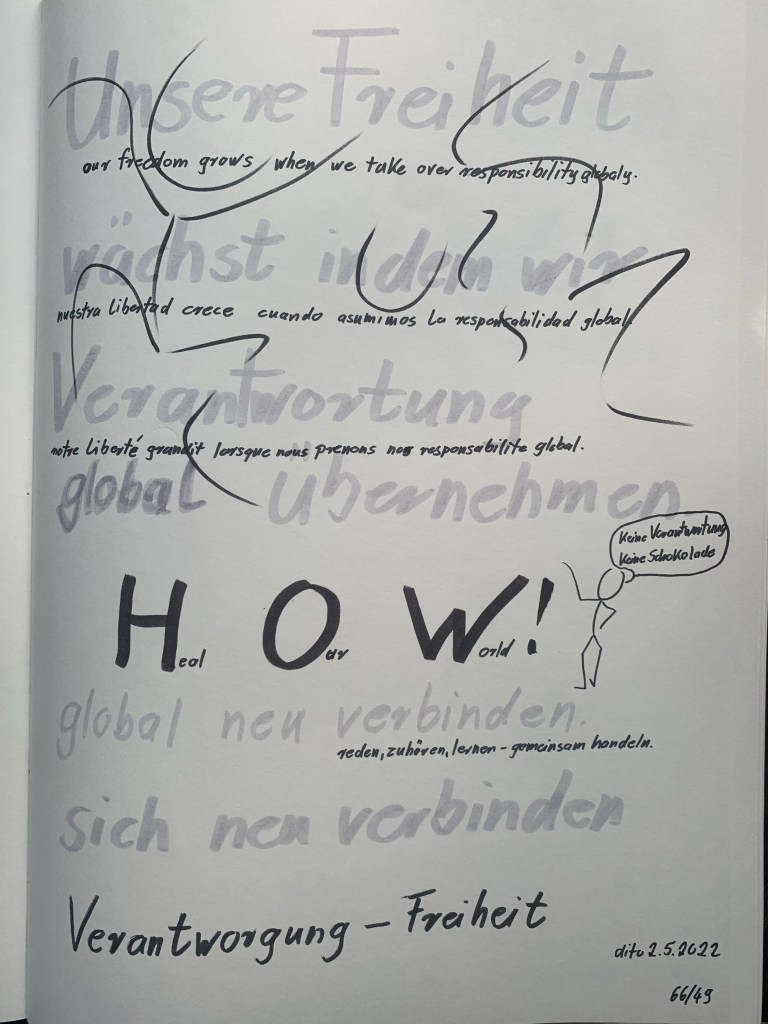 Unsere Freiheit
our freedom grows when we take over responsibility globaly.
wächst indem wir
nuestra libertad crece cuando asumimos la responsabilidad global.
Verantwortung
notre liberté grandit lorsque nous prenons nos responsabilité global.
global übernehmen
Keine Verantwortung
Keine Schokolade
Heal Our World!
global neu verbinden.
reden, zuhören, lernen - gemeinsam handeln.
sich neu verbinden
Verantworgung – Freiheit
dito 2.5.2022
66/49